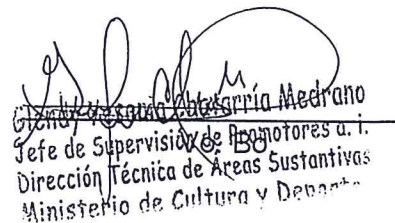 Medrano
Jefe de Supervisión de Promotores a. i.
Vo. Bo
Dirección Técnica de Áreas Sustantivas
Ministerio de Cultura y